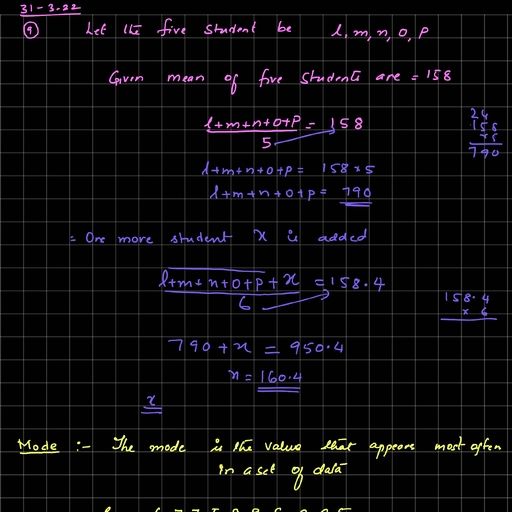 31-3.22
9 Let the five student be l, m, n, o, p
Given mean of five students are = 158
l+m+n+o+p = 158
5
24
158
×5
790
l+m+n+o+p = 158×5
l+m+n+o+p = 790
= One more student x is added
l+m+n+o+p+x = 158.4
6
158.4
×6
790+x = 950.4
x = 160.4
x
Mode :- The mode is the value that appears most often
in a set of data